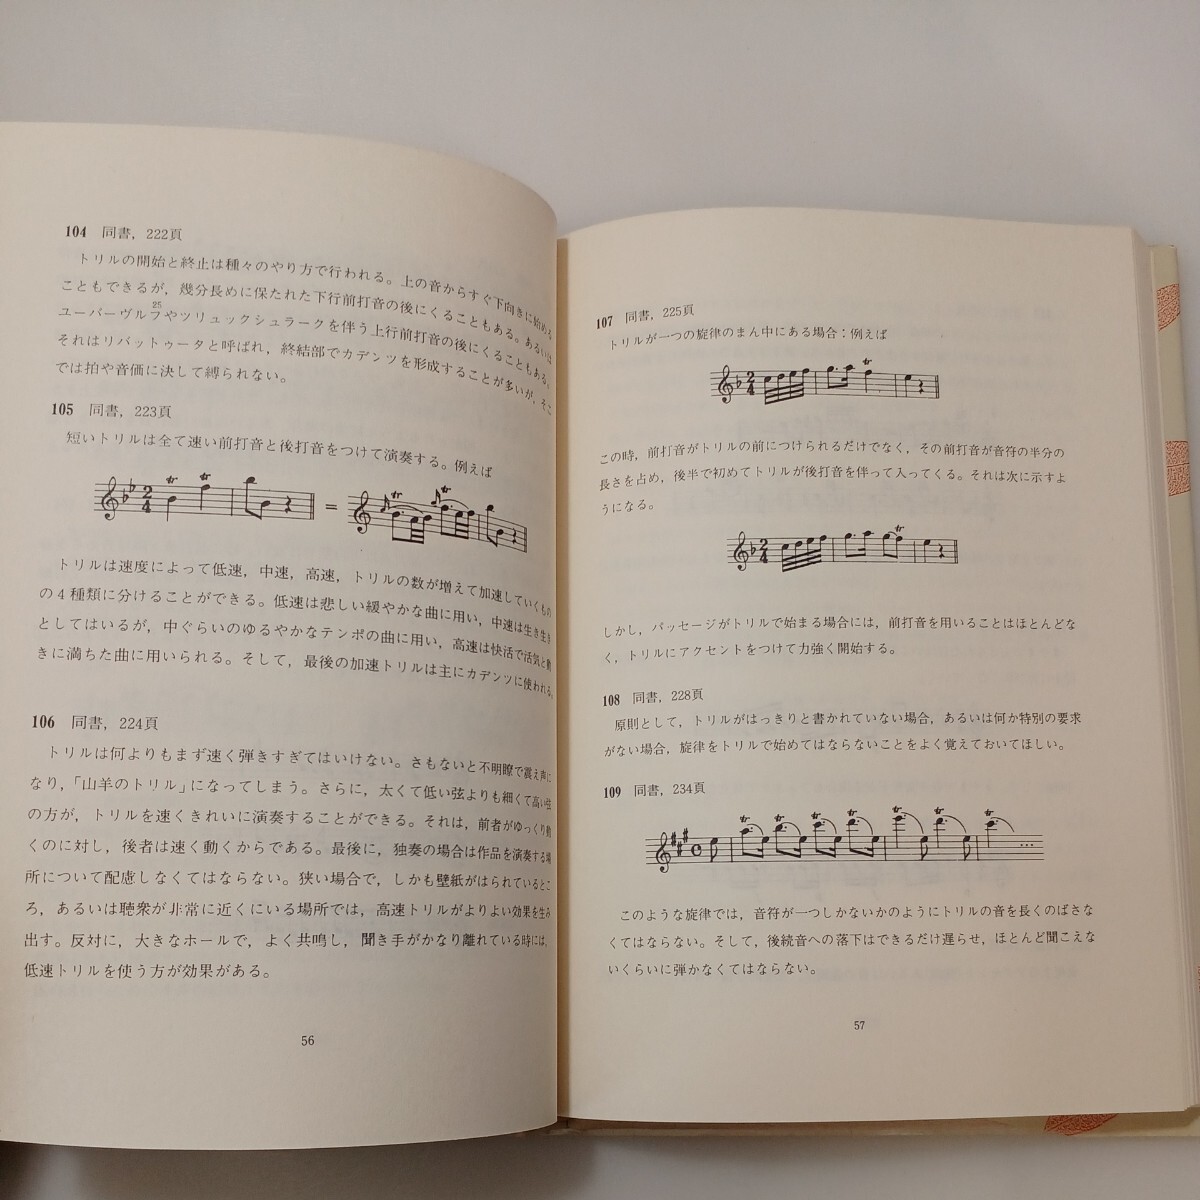 104 同書，222頁
トリルの開始と終止は種々のやり方で行われる。上の音からすぐ下向きに始める
こともできるが，幾分長めに保たれた下行前打音の後にくることもある。あるいは
25
ユーバーヴルフやツリュックシュラークを伴う上行前打音の後にくることもある。
それはリバットゥータと呼ばれ，終結部でカデンツを形成することが多いが，そこ
では拍や音価に決して縛られない。
105 同書，223頁
短いトリルは全て速い前打音と後打音をつけて演奏する。例えば
2
4
tr
tr
=
tr
tr
トリルは速度によって低速，中速，高速，トリルの数が増えて加速していくもの
の4種類に分けることができる。低速は悲しい緩やかな曲に用い，中速は生き生き
としてはいるが，中ぐらいのゆるやかなテンポの曲に用い，高速は快活で活気と動
きに満ちた曲に用いられる。そして，最後の加速トリルは主にカデンツに使われる。
106 同書，224頁
トリルは何よりもまず速く弾きすぎてはいけない。さもないと不明瞭で震え声に
なり，「山羊のトリル」になってしまう。さらに，太くて低い弦よりも細くて高い弦
の方が，トリルを速くきれいに演奏することができる。それは，前者がゆっくり動
くのに対し，後者は速く動くからである。最後に，独奏の場合は作品を演奏する場
所について配慮しなくてはならない。狭い場合で，しかも壁紙がはられているとこ
ろ，あるいは聴衆が非常に近くにいる場所では，高速トリルがよりよい効果を生み
出す。反対に，大きなホールで，よく共鳴し，聞き手がかなり離れている時には，
低速トリルを使う方が効果がある。
56
107 同書，225頁
トリルが一つの旋律のまん中にある場合：例えば
2
4
tr
この時，前打音がトリルの前につけられるだけでなく，その前打音が音符の半分の
長さを占め，後半で初めてトリルが後打音を伴って入ってくる。それは次に示すよ
うになる。
2
4
tr
しかし，パッセージがトリルで始まる場合には，前打音を用いることはほとんどな
く，トリルにアクセントをつけて力強く開始する。
108 同書，228頁
原則として，トリルがはっきりと書かれていない場合，あるいは何か特別の要求
がない場合，旋律をトリルで始めてはならないことをよく覚えておいてほしい。
109 同書，234頁
tr tr tr tr tr tr tr
...
このような旋律では，音符が一つしかないかのようにトリルの音を長くのばさな
くてはならない。そして，後続音への落下はできるだけ遅らせ，ほとんど聞こえな
いくらいに弾かなくてはならない。
57